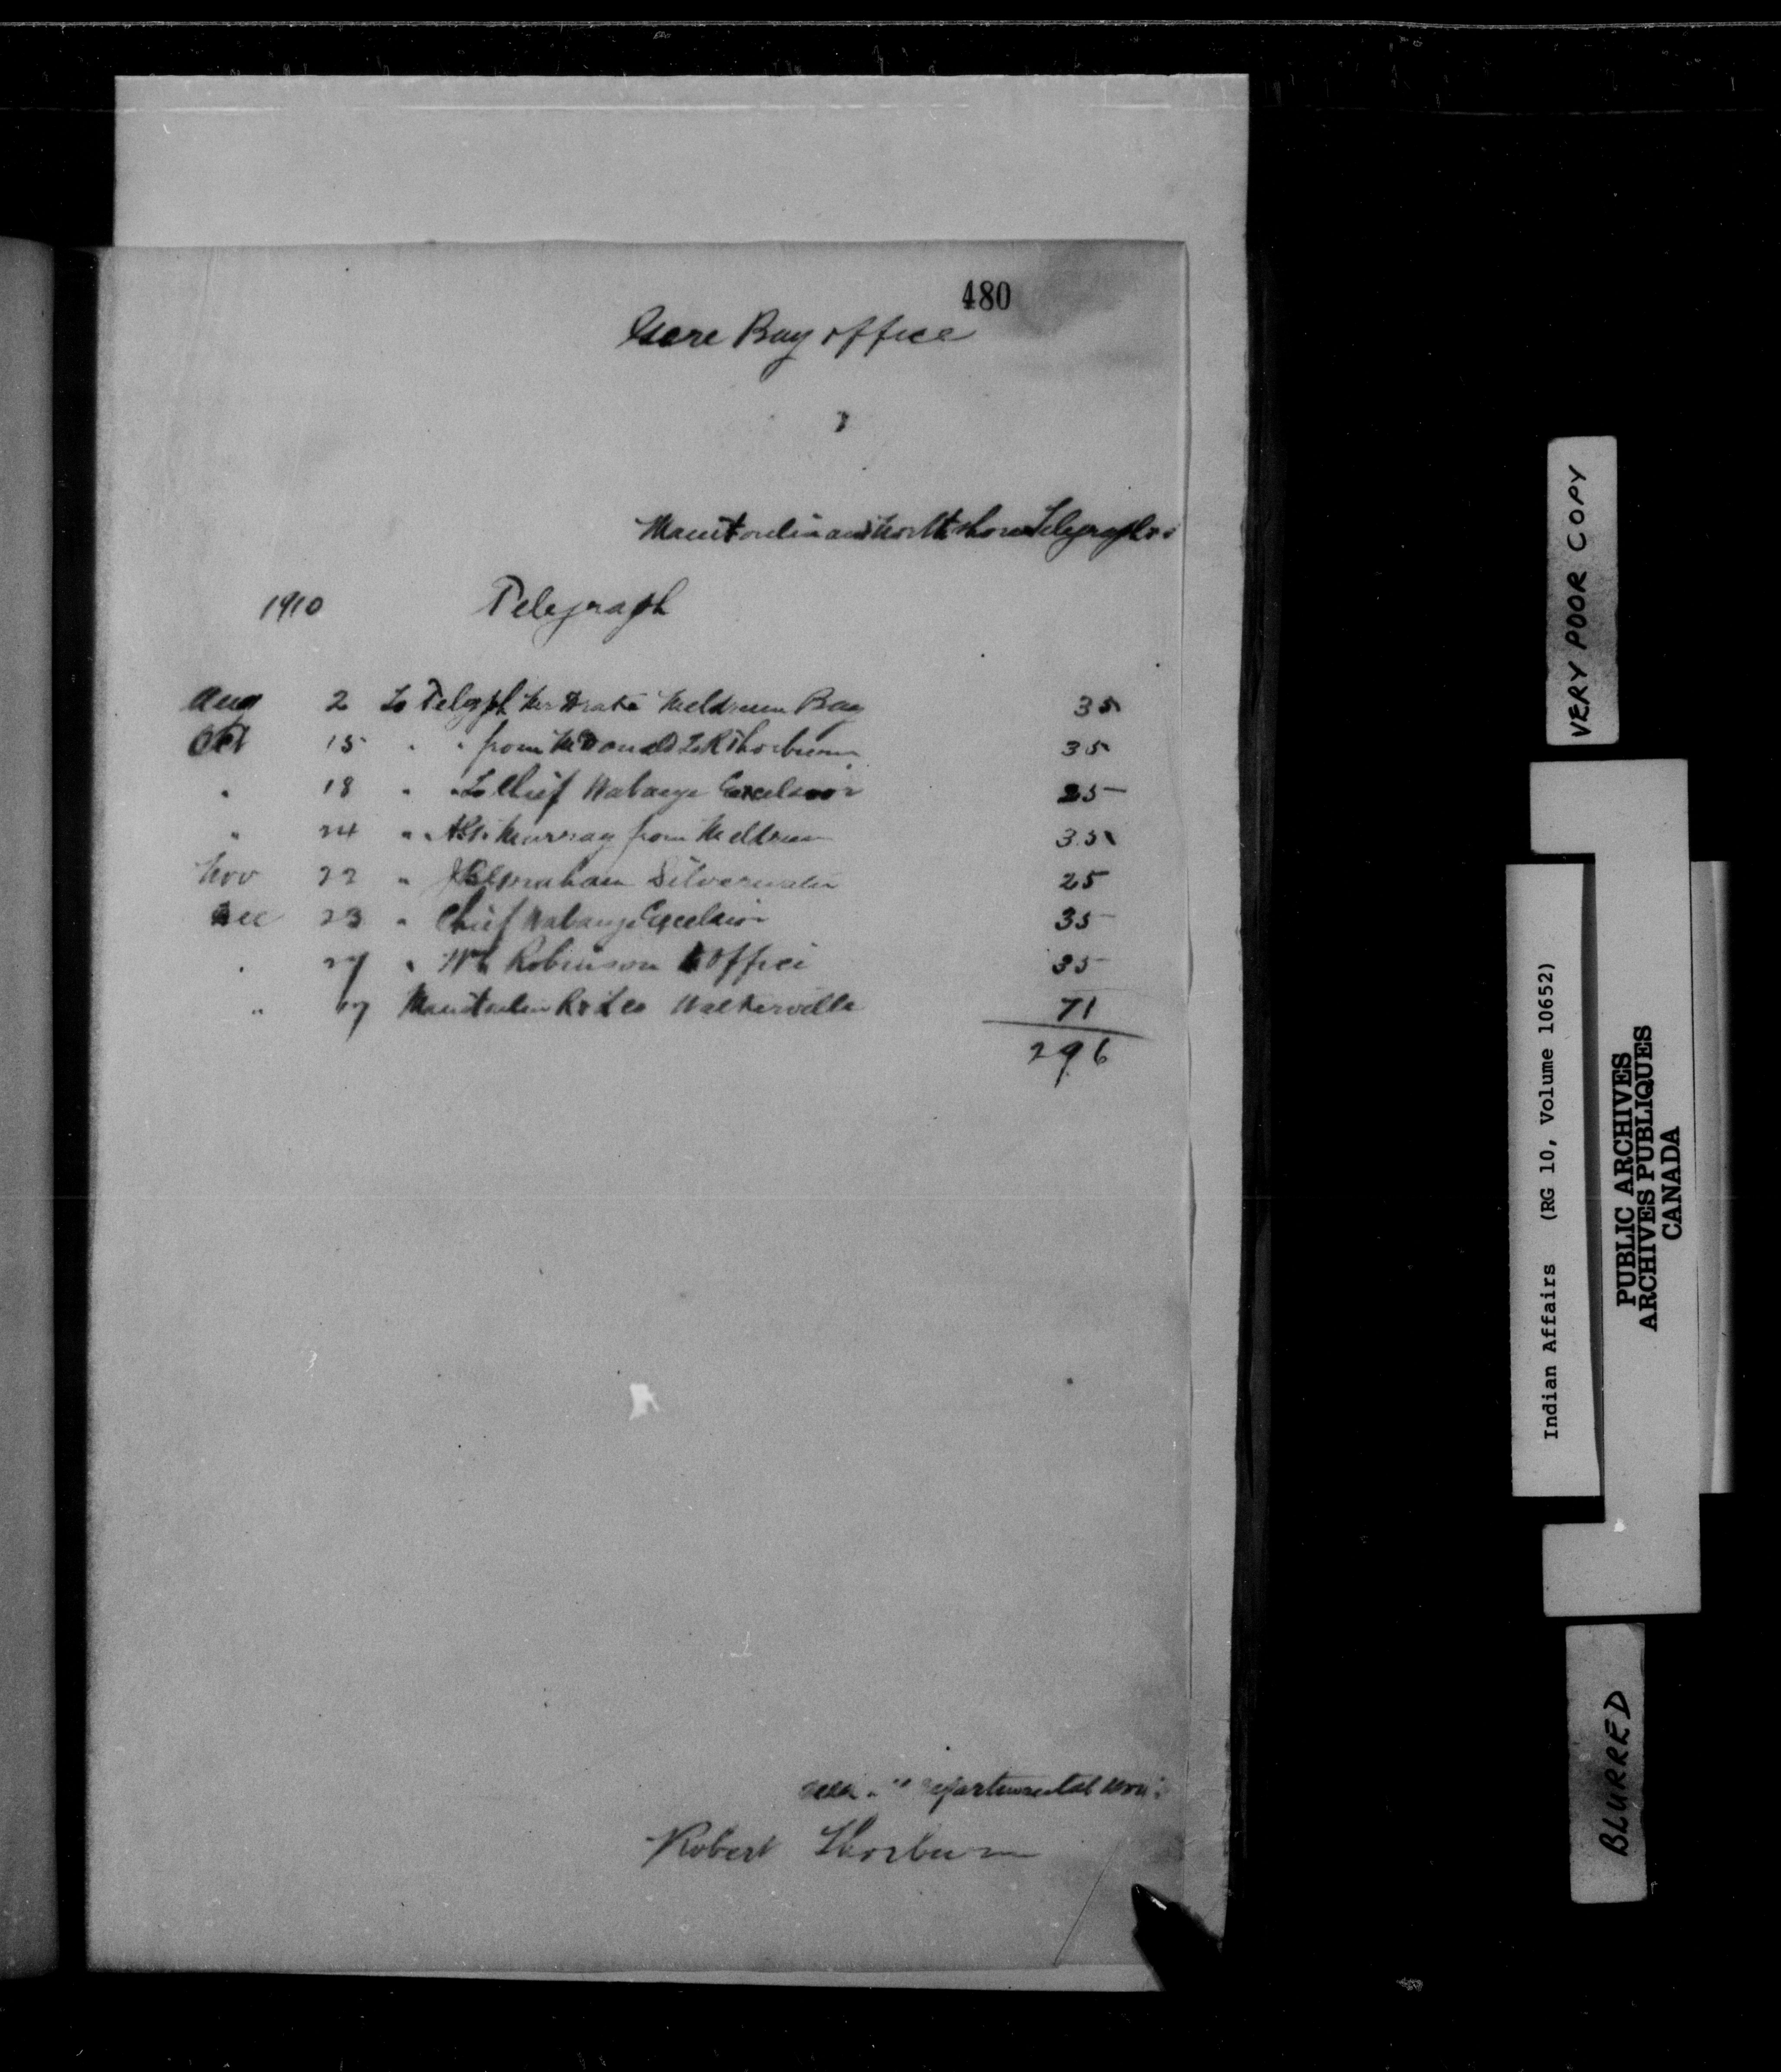 480
Gore Bay office
Manitoulin and North Shore Telegraph
1910 Telegraph
Aug 2 To Telgph Mr Drake Meldrum Bay 35
Oct 15 " " from McDonald To R Thorburn 35
" 18 " " To Chief Wabauge Excelsior 25
" 24 " " Murray from Meldrum 35
Nov 22 " Graham Silverwater 25
Dec 23 " Chief Wabauge Excelsior 35
" 27 " Wm Robinson Office 35
" 17 Manitoulin Walkerville 71
296
departmental
Robert Thorburn
VERY POOR COPY
Indian Affairs (RG 10, Volume 10652)
PUBLIC ARCHIVES
ARCHIVES PUBLIQUES
CANADA
BLURRED